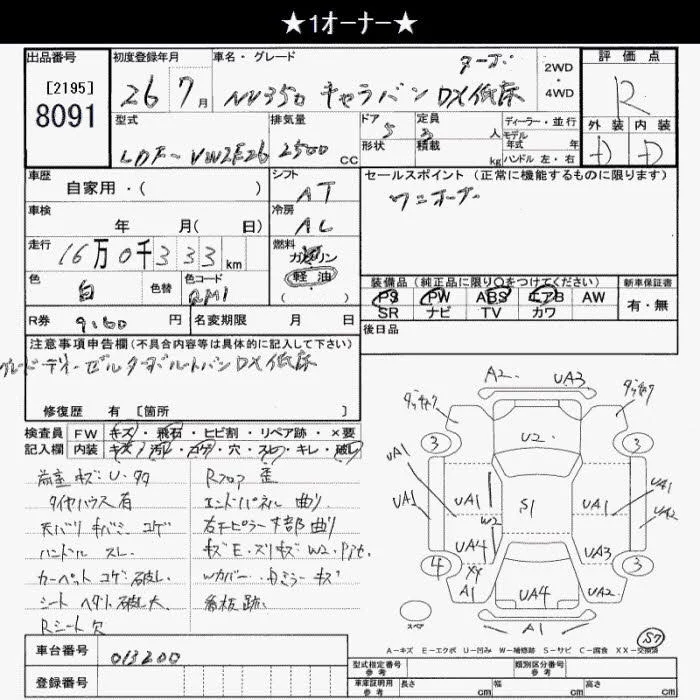 ★1オーナー★
出品番号
[2195]
8091
初度登録年月
26 7月
車名・グレード
ターボ
NV350 キャラバン DX低床
2WD
・
4WD
評価点
R
外装 内装
D D
型式
LDF-VW2E26
排気量
2500 CC
ドア
5
形状
定員
3 人
積載
kg
ディーラー・並行
モデル
年式 年
ハンドル 左・右
車歴
自家用・( )
シフト
AT
セールスポイント(正常に機能するものに限ります)
ワンオーナー
車検
年 月( 日)
冷房
AC
走行
16万0千333km
燃料
ガソリン
軽油
( )
色
白
色替
色コード
QM1
装備品(純正品に限り○をつけてください)
新車保証書
PS PW ABS エアB AW
SR ナビ TV カワ
有・無
R券
9.160 円
名変期限 月 日
後日品
注意事項申告欄(不具合内容等は具体的に記入して下さい)
グレード ディーゼルターボルートバンDX低床
修復歴 有 [箇所 ]
検査員
記入欄
FW キズ・飛石・ヒビ割・リペア跡・×要
内装 キズ・汚レ・コゲ・穴・スレ・キレ・破レ
荷室 キズ・U・サク
タイヤハウス有
天バリ キバミ コゲ
ハンドル スレ
カーペット コゲ破レ
シート ヘタト破レ大
Rシート欠
Rフロア 歪
エンドパネル 曲リ
右Fピラー下部曲リ
キズE・ズリキズW2・P汁
Wカバー・Dミラーキズ
看板跡
A2 UA3
3 3
U2
UA1 UA1 S1 UA1 UA1
UA2
W2
UA4 UA3
4 3
XX
A1 UA4 UA2
A1
スペア
S7
A-キズ E-エクボ U-凹み W-補修跡 S-サビ C-腐食 XX-交換済
車台番号
013200
登録番号
型式指定番号
参考
類別区分番号
参考
車庫証明用
参考
長さ cm 幅 cm 高さ cm